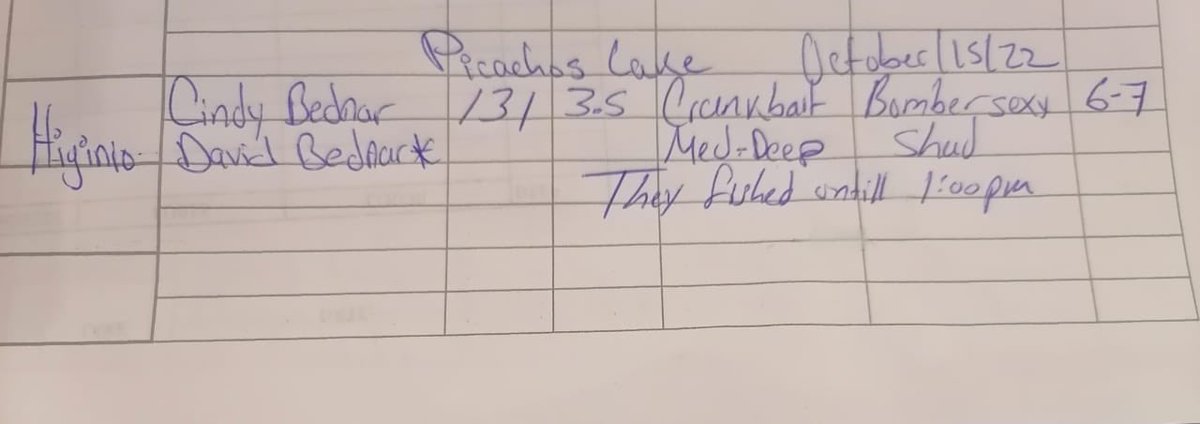 Picachos Lake October/15/22
Higinio Cindy Bednar 131 3.5 Crankbait Bomber sexy 6-7
David Bednar* Med-Deep Shad
They fished untill 1:00pm